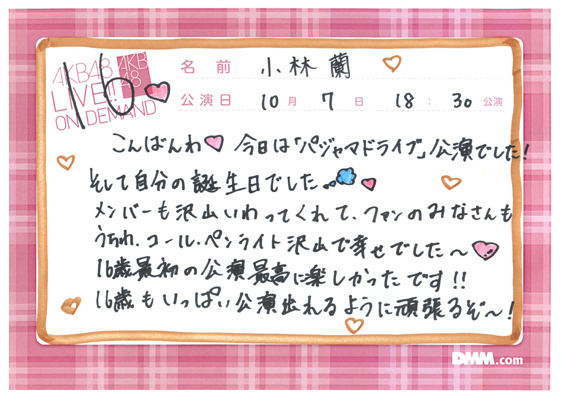 AKB48
LIVE!!
ON DEMAND
AKB
48
16
名前 小林 蘭
公演日 10月 7日 18:30公演
こんばんわ 今日は「パジャマドライブ」公演でした!
そして自分の誕生日でした。
メンバーも沢山いわってくれて、ファンのみなさんも
うちわ、コール、ペンライト沢山で幸せでした〜
16歳最初の公演最高に楽しかったです!!
16歳もいっぱい公演出れるように頑張るぞ〜!
DMM.com